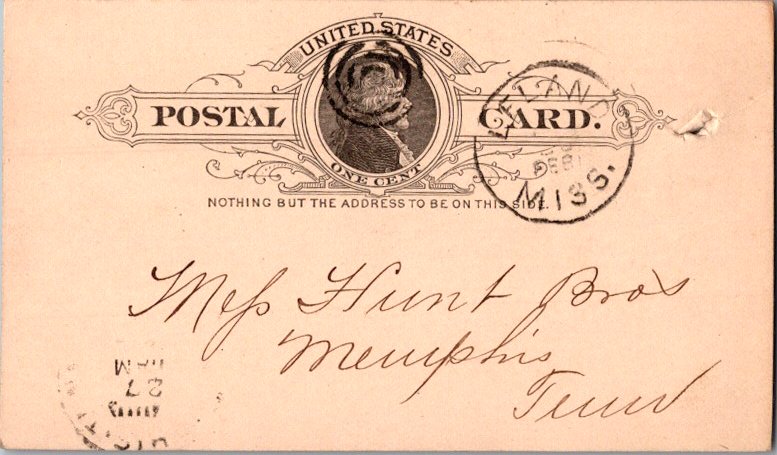 UNITED STATES
POSTAL CARD.
ONE CENT
NOTHING BUT THE ADDRESS TO BE ON THIS SIDE.
LELAND
MISS.
Mess Hunt Bros
Memphis
Tenn
27
11AM